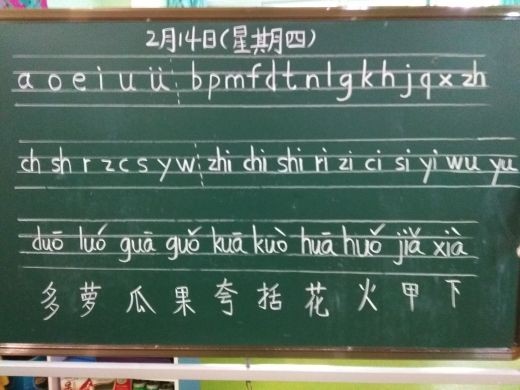 2月14日(星期四)
a o e i u ü bpmfdtnlgkhjqxzh
ch sh r z c s y w zhi chi shi ri zi ci si yi wu yu
duō luó guā guǒ kuā kuò huā huǒ jiǎ xià
多 萝 瓜 果 夸 括 花 火 甲 下